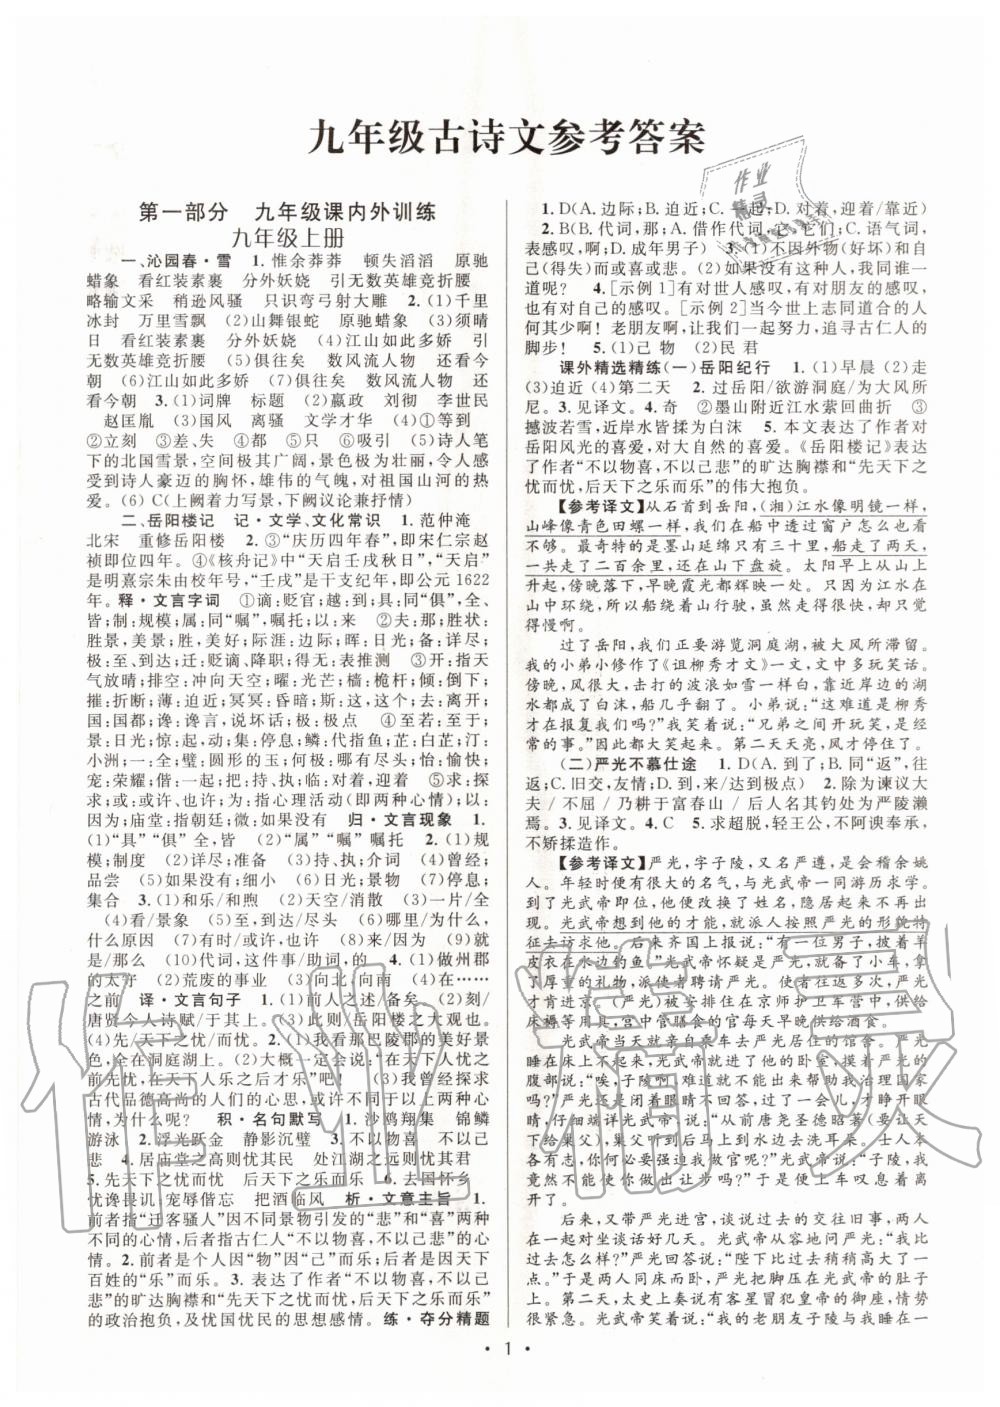 九年级古诗文参考答案
第一部分　九年级课内外训练
九年级上册
一、沁园春·雪　1.惟余莽莽　顿失滔滔　原驰
蜡象　看红装素裹　分外妖娆　引无数英雄竞折腰
略输文采　稍逊风骚　只识弯弓射大雕　2.(1)千里
冰封　万里雪飘　(2)山舞银蛇　原驰蜡象　(3)须晴
日　看红装素裹　分外妖娆　(4)江山如此多娇　引
无数英雄竞折腰　(5)俱往矣　数风流人物　还看今
朝　(6)江山如此多娇　俱往矣　数风流人物　还看
今朝　3.(1)词牌　标题　(2)嬴政　刘彻　李世民
赵匡胤　(3)国风　离骚　文学才华　(4)①等到
②立刻　③差　④都　⑤只　⑥吸引　(5)诗人笔
下的北国雪景,空间极其广阔,景色极为壮丽,令人感
受到诗人豪迈的胸怀,雄伟的气魄和对祖国山河的热
爱。(6) C(上阙着力写景,下阙议论兼抒情)
二、岳阳楼记　记·文学、文化常识　1.范仲淹
北宋　重修岳阳楼　2.③“庆历四年春”,即宋仁宗赵
祯即位四年。④《核舟记》中“天启壬戌秋日”,“天启”
是明熹宗朱由校年号,“壬戌”是干支纪年,即公元 1622
年。释·文言字词　①谪:贬官;越:到;具:同“俱”,全,
皆;制:规模;属:同“嘱”,嘱托;以:来　②夫:那;胜状:
胜景,美景;胜:美好;际涯:边际;晖:日光;备:详尽;
极:至,到达;迁:贬谪、降职;得无:表推测　③开:指天
气放晴;排空:冲向天空;曜:光芒;樯:桅杆;倾:倒下;
摧:折断;薄:迫近;冥冥:昏暗;斯:这;去:离开;
国:国都;谗:谗言,说坏话;极:极点　④至若:至于;
景:日光;惊:起,动;集:停息;鳞:代指鱼;芷:白芷;汀:
小洲;一:全;璧:圆形的玉;何极:哪有尽头;怡:愉快;
宠:荣耀;偕:一起;把:持、执;临:对着　⑤求:探
求;或:或许,也许;为:指心理活动(即两种心情);以:
因为;庙堂:指朝廷;微:如果没有　归·文言现象　1.
(1)“具”“俱”全,皆　(2)“属”“嘱”嘱托　2.(1)规
模;制度　(2)详尽;准备　(3)持、执;介词　(4)曾经;
品尝　(5)迫近;稀薄;细小　(6)日光;景物　(7)停息;
集合　3.(1)和乐/和煦　(2)天空/消散　(3)一片/全
(4)看/景象　(5)至,到达/尽头　(6)哪里/为什么,
什么原因　(7)有时/或许,也许　(8)来/因为　(9)就
是/那么　(10)代词,这件事/助词,的　4.(1)做州郡
的太守　(2)荒废的事业　(3)向北;向南　(4)在……
之前　译·文言句子　1.(1)前人之述/备矣。(2)刻/
唐贤今人诗赋/于其上。(3)此则/岳阳楼之大观也。
(4)先/天下之忧/而忧。2.(1)我看那巴陵郡的美好景
色,全在洞庭湖上。(2)大概一定会说“在天下人忧之
前忧,在天下人乐之后才乐”吧!(3)我曾经探求古
代品德高尚的人们的心思,或许不同于以上两种心
情,为什么呢?　积·名句默写　1.沙鸥翔集　锦鳞
游泳　2.浮光跃金　静影沉璧　3.不以物喜　不以己
悲　4.居庙堂之高则忧其民　处江湖之远则忧其君
5.先天下之忧而忧　后天下之乐而乐　6.去国怀乡
忧谗畏讥;宠辱偕忘　把酒临风　析·文意主旨　1.
前者指“迁客骚人”因不同景物引发的“悲”和“喜”两种
不同的心情,后者指古仁人“不以物喜,不以己悲”的心
情。2.前者是个人因“物”因“己”而乐;后者是因天下
百姓的“乐”而乐。3.表达了作者“不以物喜,不以己
悲”的旷达胸襟和“先天下之忧而忧,后天下之乐而乐”
的政治抱负,及忧国忧民的思想感情。练·夺分精题
1. D(A.边际;B.迫近;C.一起;D.对着,迎着/靠近)
2. B(B.代词,那;A.借作代词,它;C.语气词,
表感叹,啊;D.成年男子)　3.(1)不因外物(好坏)和自
己(得失)而或喜或悲。(2)如果没有这种人,我同谁一
道呢?　4.[示例 1]有对世人感叹,有对朋友的感叹,
也有对自己的感叹。[示例 2]当今世上志同道合的人
何其少啊!老朋友啊,让我们一起努力,追寻古仁人的
脚步!　5.(1)己 物　(2)民 君
课外精选精练(一)岳阳纪行　1.(1)早晨　(2)走
(3)迫近　(4)第二天　2.过岳阳/欲游洞庭/为大风所
尼。3.见译文。4.奇　②墨山附近江水萦回曲折　③
撼波若雪,近岸水皆揉为白沫　5.本文表达了作者对
岳阳风光的喜爱,对大自然的喜爱。《岳阳楼记》表达
了作者“不以物喜,不以己悲”的旷达胸襟和“先天下之
忧而忧,后天下之乐而乐”的伟大抱负。
【参考译文】从石首到岳阳,(湘)江水像明镜一样,
山峰像青色田螺一样,我们在船中透过窗户怎么也看
不够。最奇特的是墨山延绵只有三十里,船走了两天,
一共走了二百余里,还在山下盘旋。太阳早上从山上
升起,傍晚落下,早晚霞光都辉映一处。因为江水在
山中环绕,所以船绕着山行驶,虽然走得很快,却只觉
得很慢啊。
过了岳阳,我们正要游览洞庭湖,被大风所滞留。
我的小弟小修作了《诅柳秀才文》一文,文中多玩笑话。
傍晚,风很大,击打的波浪如雪一样,靠近岸边的湖
水都成了白沫,船几乎翻了。小弟说:“这难道是柳秀
才在报复我们吗?”我笑着说:“兄弟之间开玩笑,是经
常的事。”因此都大笑起来。第二天天亮,风才停住了。
(二)严光不慕仕途　1. D(A.到了;B.同“返”,往
返;C.旧交,友情;D.到,来/达到极点)　2.除为谏议大
夫 / 不屈 / 乃耕于富春山 / 后人名其钓处为严陵濑
焉。3.见译文。4. C　5.求超脱,轻王公,不阿谀奉承,
不矫揉造作。
【参考译文】严光,字子陵,又名严遵,是会稽余姚
人。年轻时便有很大的名气,与光武帝一同游历求学。
到了光武帝即位,他便改换了姓名,隐居起来不再出
现。光武帝想到他的才能,就派人按照严光的形貌特
征去访求他。后来齐国上报说:“有一位男子,披着羊
皮衣在水边钓鱼”光武帝怀疑是严光,就备了小车,拿
了厚重的礼物,派使者聘请严光。使者往返多次,严光
才肯进京。(严光)被安排住在京师护卫军营中,供给
床褥等用具,宫中管膳食的官每天早晚供给酒食。
光武帝当天就亲自乘车去严光居住的馆舍。严光
睡在床上不起来。光武帝就进了他的卧室,摸着严光的
腹部说:“唉,子陵啊,难道就不能帮助我治理国家
吗?”严光还是睡着不回答。过了一会儿,才睁开眼
睛,仔细端详光武帝说:“从前唐尧圣德昭著(要让天下
给巢父),巢父听到后马上到水边去洗耳朵。士人本
各有志,你何必要强迫我做官呢?”光武帝说:“子陵,我
竟然不能使你做出让步吗?”于是便上车,叹息着离开
了。
后来,又带严光进宫,谈说过去的交往旧事,两人
在一起对坐谈话好几天。光武帝从容地问严光说:“我
比过去怎么样?”严光回答说:“陛下比过去稍稍高大了
一点。”(于是)两人同床而卧,严光把脚压在光武帝的肚子
上。第二天,太史上奏说有客星冒犯皇帝的御座,情势
很紧急。光武帝笑着说:“我的老朋友严子陵与我一
• 1 •
作业精灵